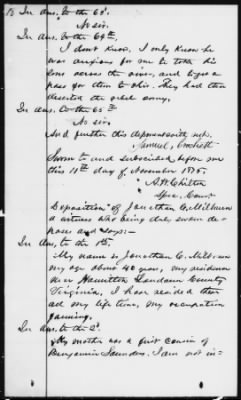 In Ans. to the 63d.
No sir.
In Ans. to the 64th,
I don't know, I only know he
was anxious for me to take his
sons across the river, and to get a
pass for them to Ohio. They had then
deserted the rebel army.
In ans. to the 65th
No sir.
And further this deponent saith not.
Samuel Crockett
Sworn to and subscribed before me
this 11th day of November 1875.
Spec. Comr
Deposition of Jonathan C. Milburn
a witness who being duly sworn de-
poses and says:-
In Ans, to the 1st.
My name is Jonathan C. Milburn
my age about 40 years, my residence
near Hamilton Loudoun County
Virginia, I have resided there
all my life time, my occupation
farming.
In Ans. to the 2d
My mother was a first cousin of
Benjamin Saunders. I am not in-